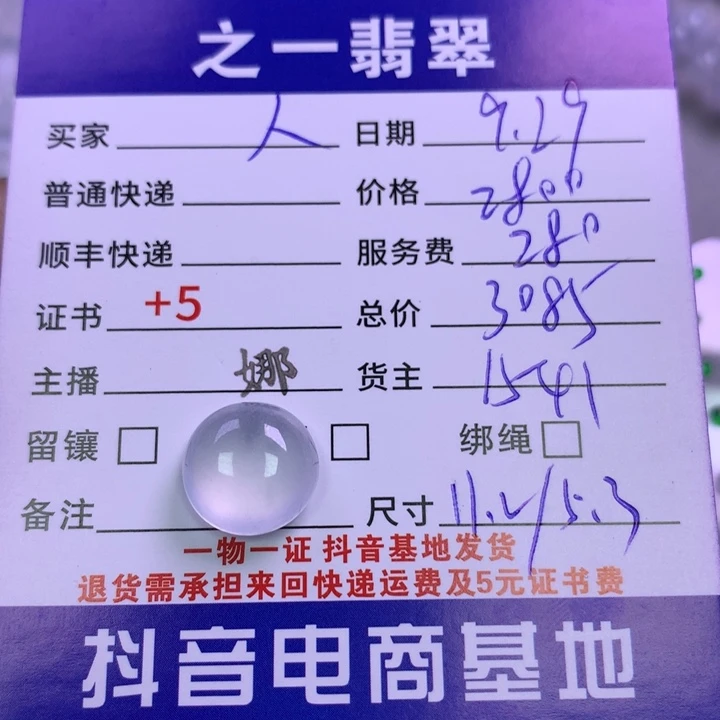 之一翡翠
买家 人 日期 9.29
普通快递 价格 2800
顺丰快递 服务费 280
证书 +5 总价 3085
主播 娜 货主 1541
留镶 绑绳
备注 尺寸 11.2/5.3
一物一证 抖音基地发货
退货需承担来回快递运费及5元证书费
抖音电商基地